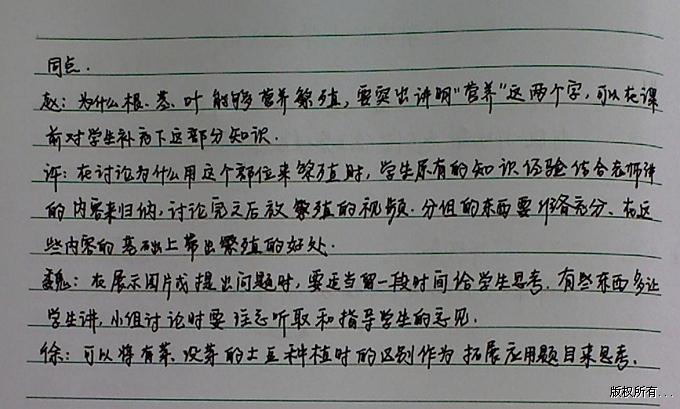 同点.
赵：为什么根、茎、叶能够营养繁殖，要突出讲明“营养”这两个字，可以在课
前对学生补充下这部分知识.
许：在讨论为什么用这个部位来繁殖时，学生原有的知识经验结合老师讲
的内容来归纳，讨论完之后放繁殖的视频.分组的东西要准备充分、在这
些内容的基础上带出繁殖的好处.
魏：在展示图片或提出问题时，要适当留一段时间给学生思考.有些东西多让
学生讲，小组讨论时要注意听取和指导学生的意见.
徐：可以将有芽、没芽的土豆种植时的区别作为拓展应用题目来思考.
版权所有...